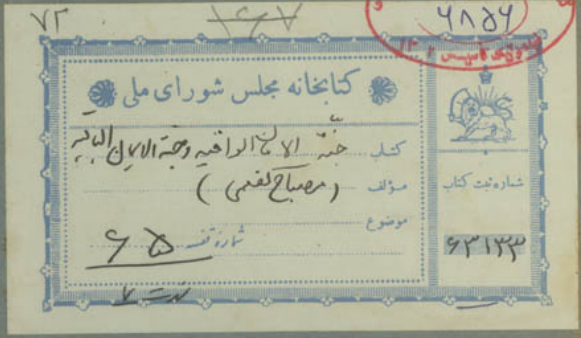 ۷۲
۱۶۷
۴۸۵۴
کتابخانه مجلس شورای ملی
کتاب جنّة الامان الواقیه وجنة الایمان الباقیه
مؤلف (مصباح کفعمی)
موضوع
شماره قفسه ۶۵
شماره ثبت کتاب
۶۳۱۳۳